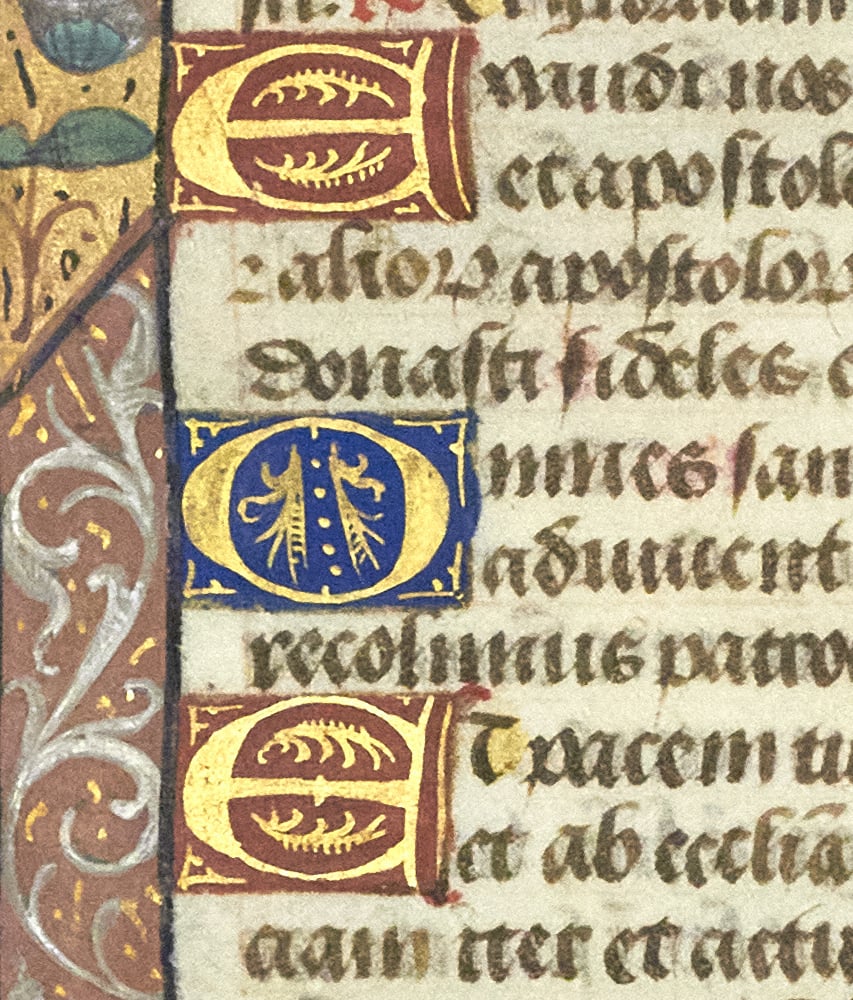 Exaudi nos
et apostol
⁊ alioꝝ apostoloꝝ
donasti fideles
Omnes san
adiuuent
recolimus patro
Et pacem tu
et ab ecclia
iter et actu